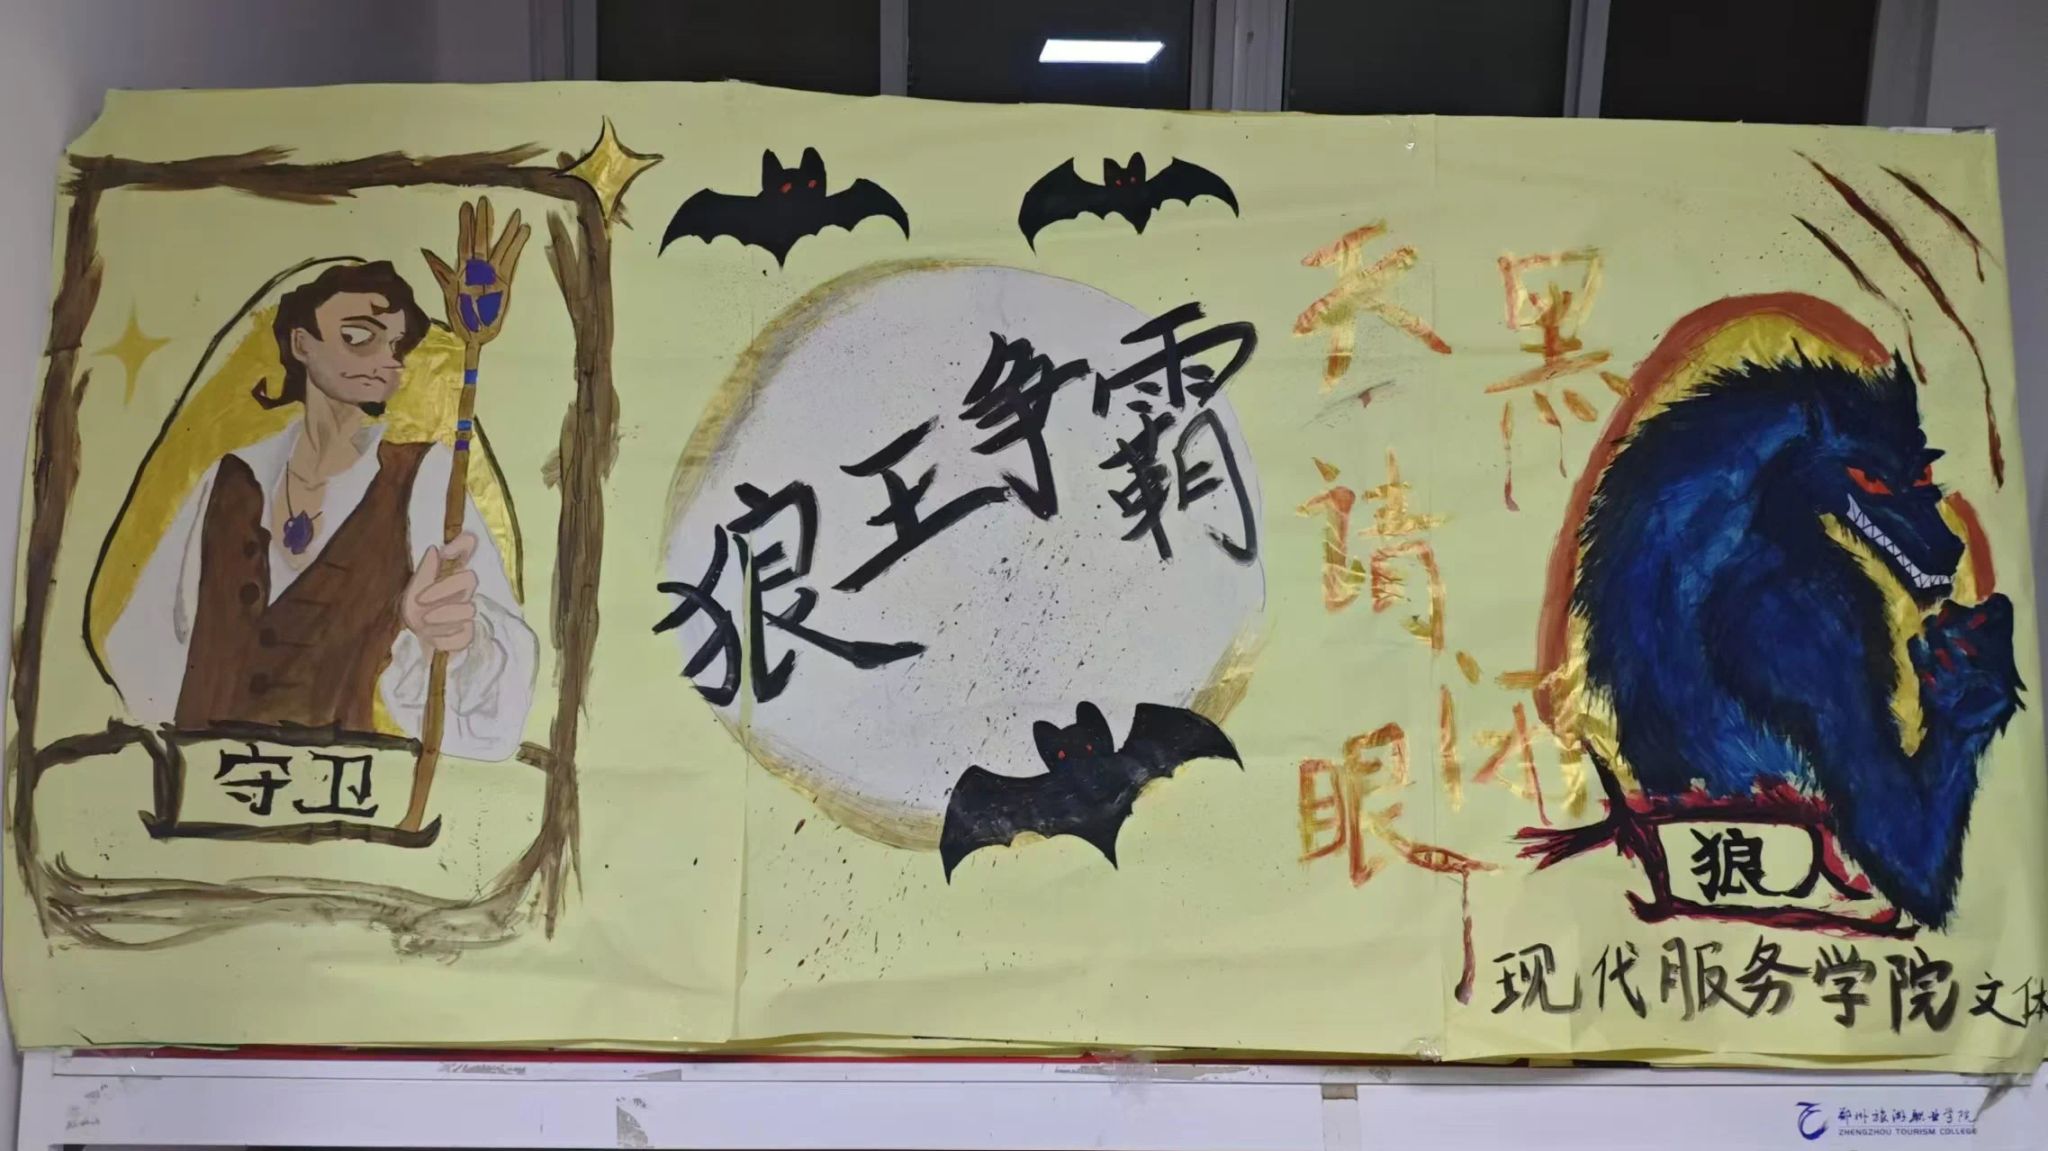 狼王争霸
天黑
请闭
眼
守卫
狼人
现代服务学院文体
郑州旅游职业学院
ZHENGZHOU TOURISM COLLEGE